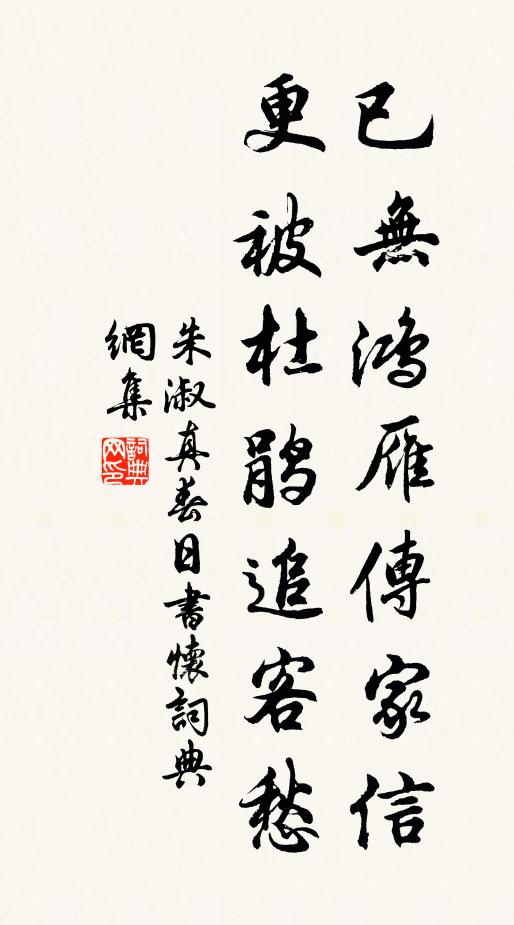 已無鴻雁傳家信
更被杜鵑追客愁
朱淑真春日書懷詞典
網集
詞典网印